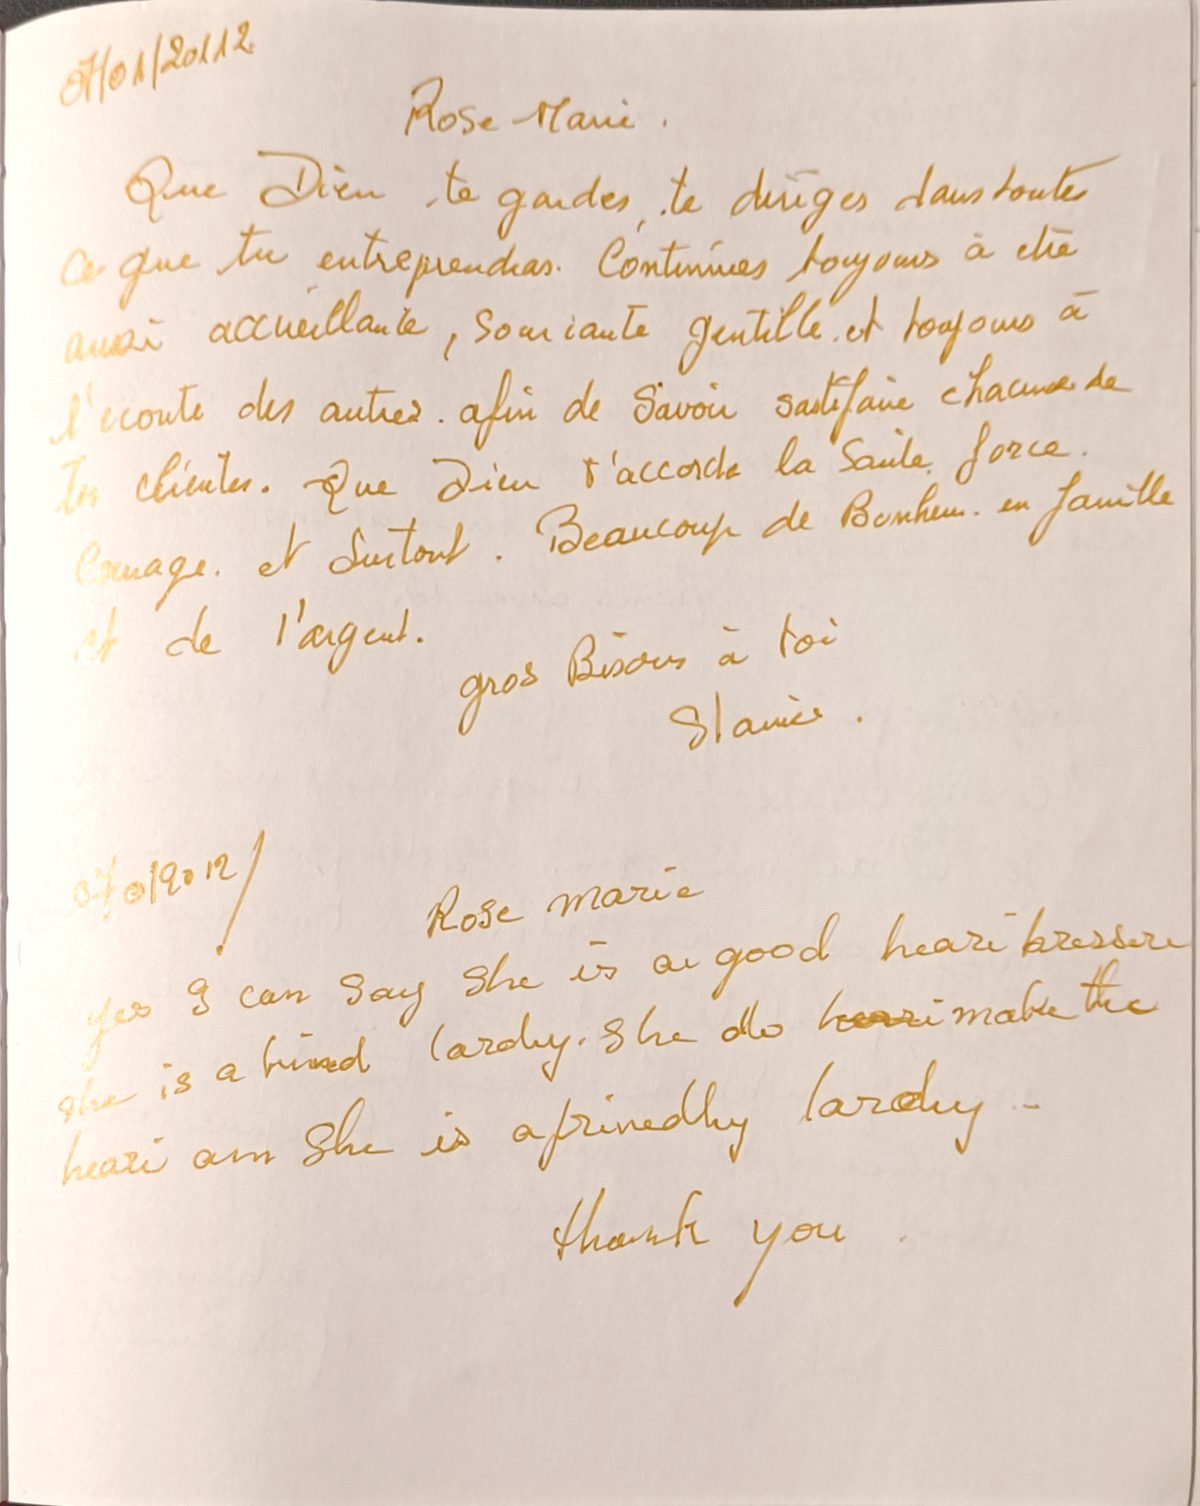 07/01/20112
Rose-Marie.
Que Dieu te gardes, te diriges dans toutes
ce que tu entreprendras. Continues toujours à etre
aussi accueillante, souriante gentille et toujours à
l'ecoute des autres. afin de savoir sastifaire chacune de
tes clientes. Que Dieu t'accorde la Sante, force.
Courage. et Surtout. Beaucoup de Bonheur. en famille
et de l'argent.
gros Bisous à toi
07/01/2012/
Rose marie
yes I can say she is a good heari bressere
she is a kined lardy. she do make the
heari am she is a frinedly lardy -
thank you.